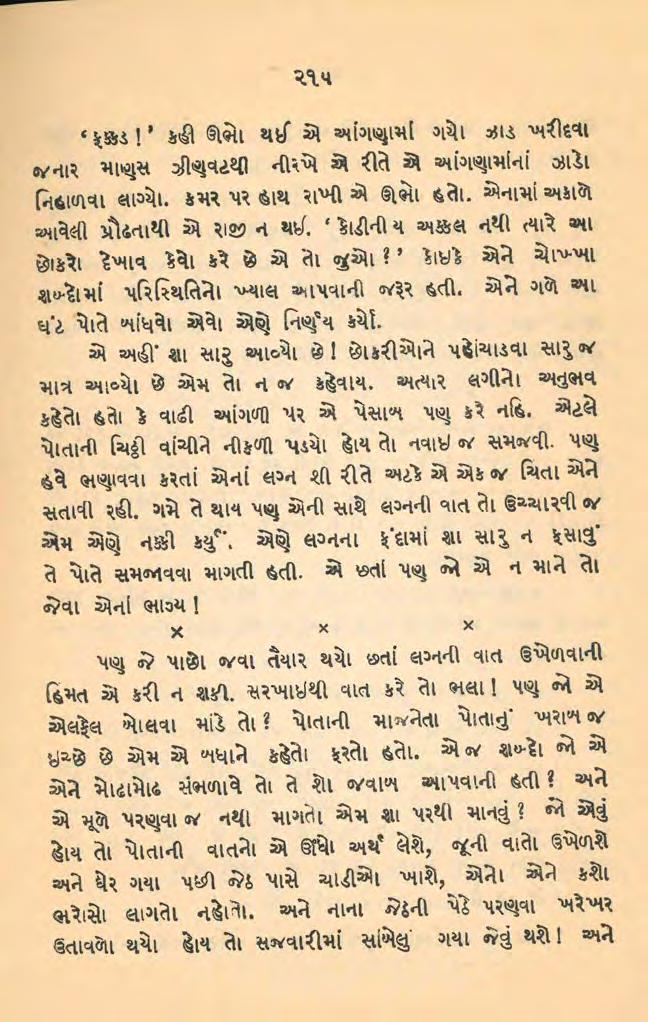 ૨૧૫
‘ફક્કડ!’ કહી ઊભો થઈ એ આંગણામાં ગયો ઝાડ ખરીદવા
જનાર માણુસ ઝીણુવટથી નીરખે એ રીતે એ આંગણામાંનાં ઝાડો
નિહાળવા લાગ્યો. કમર પર હાથ રાખી એ ઊભો હતો. એનામાં અકાળે
આવેલી પ્રૌઢતાથી એ રાજી ન થઈ. ‘કોડીનીય અક્કલ નથી ત્યારે આ
છોકરો દેખાવ કેવો કરે છે એ તો જુઓ?’ કોઇકે એને ચોખ્ખા
શબ્દોમાં પરિસ્થિતિનો ખ્યાલ આપવાની જરૂર હતી. એને ગળે આ
ઘંટ પોતે બાંધવો એવો એણે નિર્ણય કર્યો.
એ અહીં શા સારુ આવ્યો છે! છોકરીઓને પહોંચાડવા સારુ જ
માત્ર આવ્યો છે એમ તો ન જ કહેવાય. અત્યાર લગીનો અનુભવ
કહેતો હતો કે વાઢી આંગળી પર એ પેસાબ પણ કરે નહિ. એટલે
પોતાની ચિઠ્ઠી વાંચીને નીકળી પડયો હોય તો નવાઇ જ સમજવી. પણ
હવે ભણાવવા કરતાં એનાં લગ્ન શી રીતે અટકે એ એક જ ચિંતા એને
સતાવી રહી. ગમે તે થાય પણ એની સાથે લગ્નની વાત તો ઉચ્ચારવી જ
એમ એણે નક્કી કર્યું. એણે લગ્નના ફંદામાં શા સારુ ન ફસાવું
તે પોતે સમજાવવા માગતી હતી. એ છતાં પણ જો એ ન માને તો
જેવા એનાં ભાગ્ય!
× × ×
પણ જે પાછો જવા તૈયાર થયો છતાં લગ્નની વાત ઉખેળવાની
હિંમત એ કરી ન શકી. સરખાઇથી વાત કરે તો ભલા! પણ જો એ
એલફેલ બોલવા માંડે તો? પોતાની માજનેતા પોતાનું ખરાબ જ
ઇચ્છે છે એમ એ બધાને કહેતો ફરતો હતો. એ જ શબ્દો જો એ
એને મોઢામોઢ સંભળાવે તો તે શો જવાબ આપવાની હતી? અને
એ મૂળે પરણવા જ નથી માગતો એમ શા પરથી માનવું? જો એવું
હોય તો પોતાની વાતનો એ ઊંધો અર્થ લેશે, જૂની વાતો ઉખેળશે
અને ઘેર ગયા પછી જેઠ પાસે ચાડીઓ ખાશે, એનો એને કશો
ભરોસો લાગતો નહોતો. અને નાના જેઠની પેઠે પરણવા ખરેખર
ઉતાવળો થયો હોય તો સજવારીમાં સાંબેલું ગયા જેવું થશે! અને